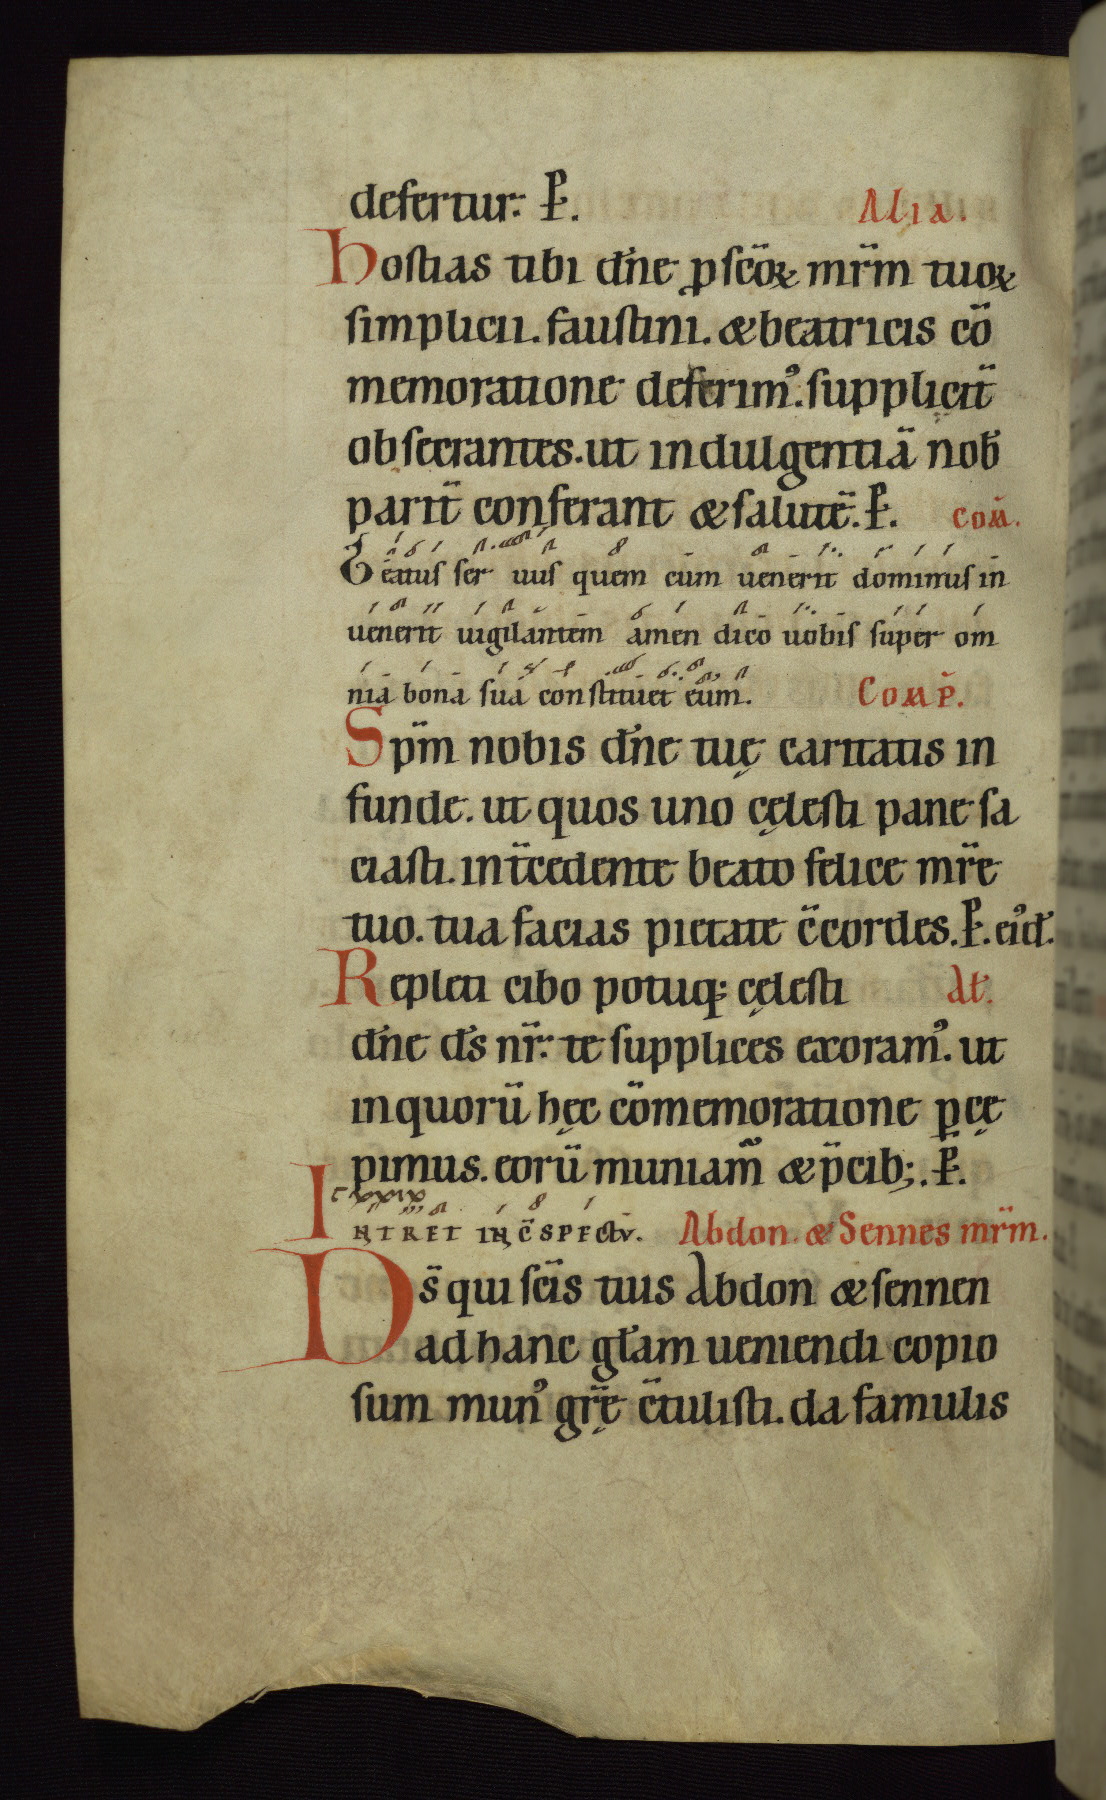 defertur. P̄. Alia.
Hostias tibi dn̄e p̱ sc̄oꝝ mr̄m tuoꝝ
simplicii. faustini. & beatricis cō
memoratione deferimꝰ. supplicit̄
obsecrantes. ut indulgentiā nob̄
parit̄ conferant & salutē. P̄. Com̄.
Beatus seruus quem cum uenerit dominus in
uenerit uigilantem amen dico uobis super om
nia bona sua constituet eum. Com̄p̄.
Sp̄m nobis dn̄e tuę caritatis in
funde. ut quos uno cęlesti pane sa
ciasti. int̄cedente beato felice mr̄e
tuo. tua facias pietate c̄cordes. P̄. eiꝰd̄.
Repleti cibo potuq; cęlesti At̄.
dn̄e ds̄ nr̄. te supplices exoramꝰ. ut
in quorū hęc cōmemoratione p̱cę
pimus. eorū muniam̄ & p̄cib;. P̄.
INTRET IN C̄SPECTV. Abdon & Sennes mr̄m.
Ds̄ qui sc̄is tuis Abdon & sennen
ad hanc gl̄am ueniendi copio
sum munꝰ gr̄ę c̄tulisti. da famulis